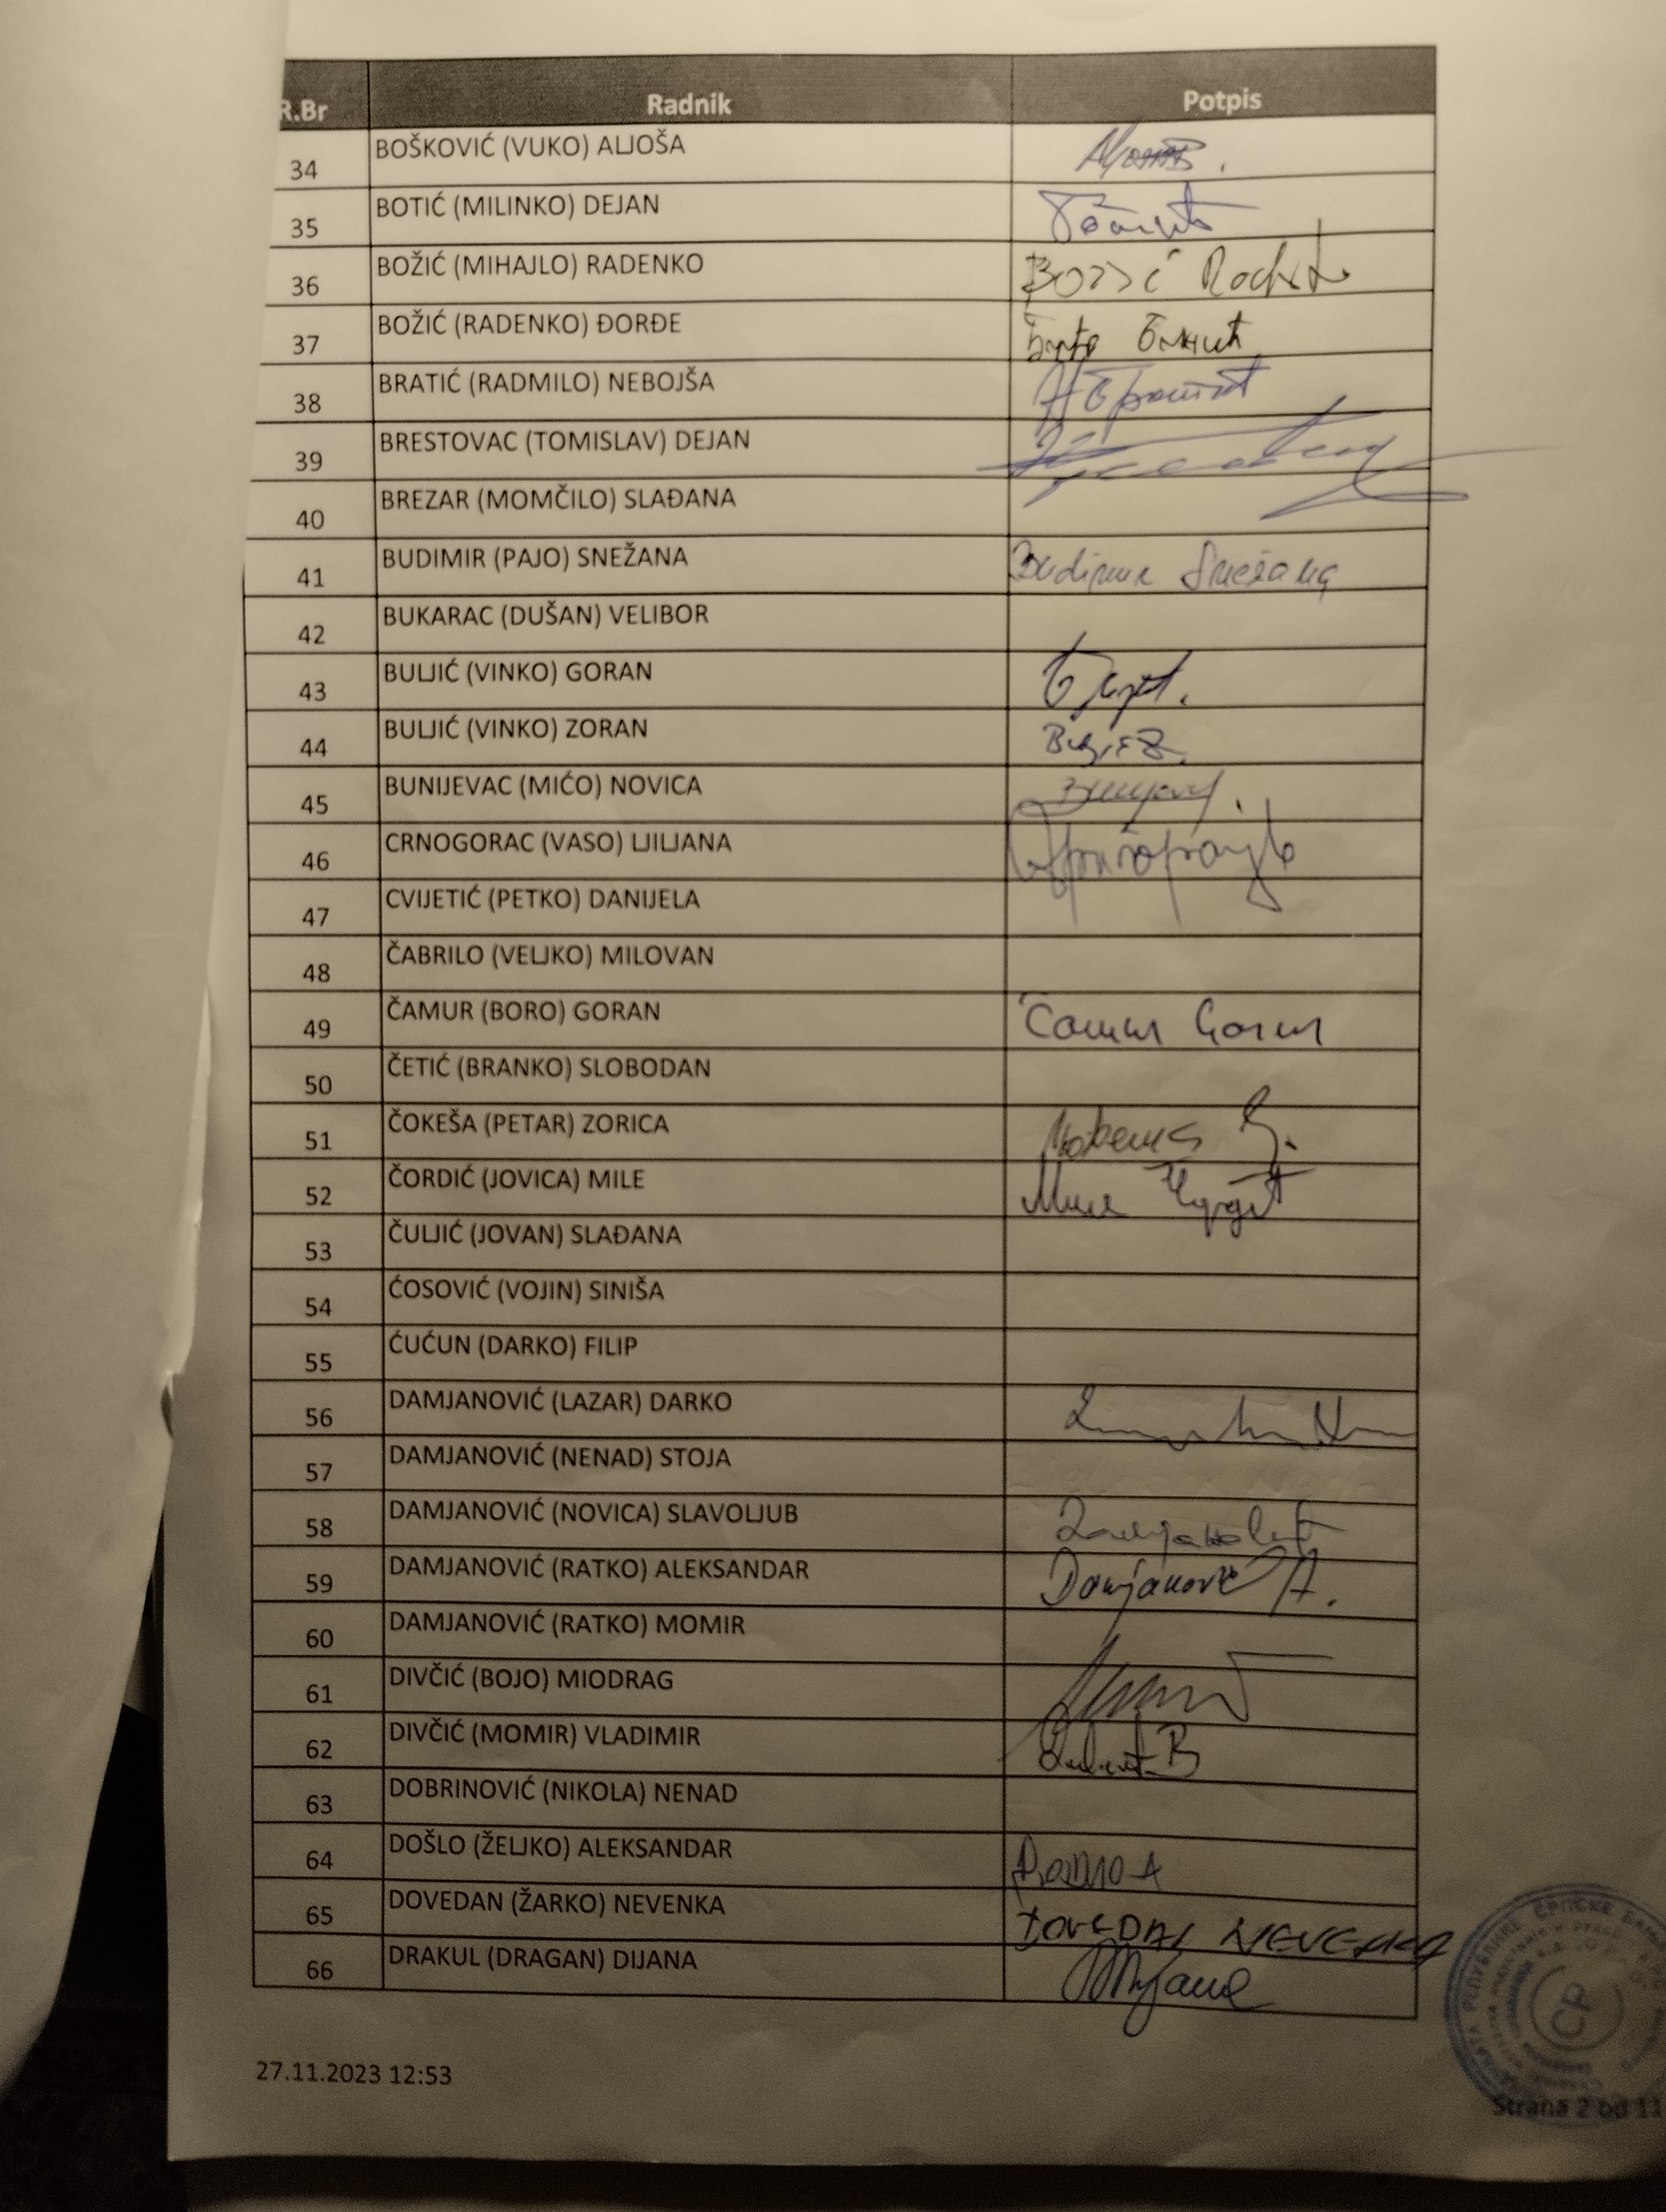 R.Br Radnik Potpis
34 BOŠKOVIĆ (VUKO) ALJOŠA
35 BOTIĆ (MILINKO) DEJAN
36 BOŽIĆ (MIHAJLO) RADENKO
37 BOŽIĆ (RADENKO) ĐORĐE
38 BRATIĆ (RADMILO) NEBOJŠA
39 BRESTOVAC (TOMISLAV) DEJAN
40 BREZAR (MOMČILO) SLAĐANA
41 BUDIMIR (PAJO) SNEŽANA Budimir Snežana
42 BUKARAC (DUŠAN) VELIBOR
43 BULJIĆ (VINKO) GORAN
44 BULJIĆ (VINKO) ZORAN
45 BUNIJEVAC (MIĆO) NOVICA
46 CRNOGORAC (VASO) LJILJANA
47 CVIJETIĆ (PETKO) DANIJELA
48 ČABRILO (VELJKO) MILOVAN
49 ČAMUR (BORO) GORAN Čamur Goran
50 ČETIĆ (BRANKO) SLOBODAN
51 ČOKEŠA (PETAR) ZORICA
52 ČORDIĆ (JOVICA) MILE
53 ČULJIĆ (JOVAN) SLAĐANA
54 ĆOSOVIĆ (VOJIN) SINIŠA
55 ĆUĆUN (DARKO) FILIP
56 DAMJANOVIĆ (LAZAR) DARKO
57 DAMJANOVIĆ (NENAD) STOJA
58 DAMJANOVIĆ (NOVICA) SLAVOLJUB
59 DAMJANOVIĆ (RATKO) ALEKSANDAR Damjanović A.
60 DAMJANOVIĆ (RATKO) MOMIR
61 DIVČIĆ (BOJO) MIODRAG
62 DIVČIĆ (MOMIR) VLADIMIR
63 DOBRINOVIĆ (NIKOLA) NENAD
64 DOŠLO (ŽELJKO) ALEKSANDAR
65 DOVEDAN (ŽARKO) NEVENKA DOVEDAN NEVENKA
66 DRAKUL (DRAGAN) DIJANA
27.11.2023 12:53
Strana 2 od 11